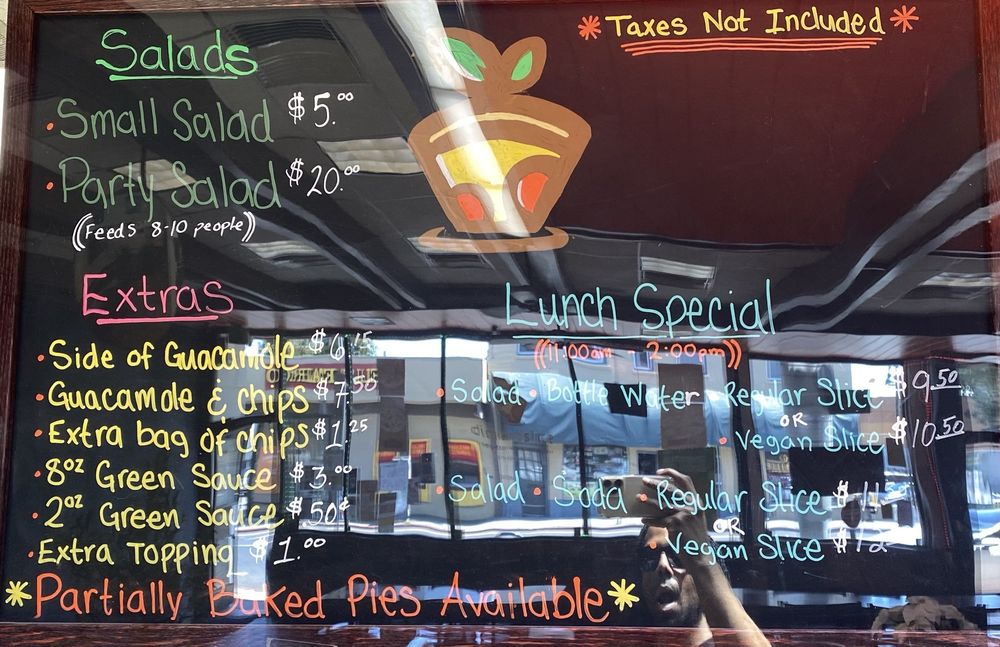 Salads
• Small Salad $5.00
• Party Salad $20.00
((Feeds 8-10 people))
* Taxes Not Included *
Extras
• Side of Guacamole $6.15
• Guacamole & chips $7.50
• Extra bag of chips $1.25
• 8oz Green Sauce $3.00
• 2oz Green Sauce $50¢
• Extra Topping $1.00
Lunch Special
((11:00am - 2:00pm))
• Salad • Bottle Water • Regular Slice $9.50
OR
• Vegan Slice $10.50
• Salad • Soda • Regular Slice $11
OR
• Vegan Slice $12
* Partially Baked Pies Available *